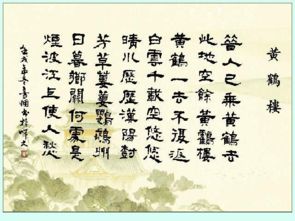 黃鶴樓
昔人已乘黃鶴去
此地空餘黃鶴樓
黃鶴一去不復返
白雲千載空悠悠
晴川歷歷漢陽樹
芳草萋萋鸚鵡洲
日暮鄉關何處是
煙波江上使人愁